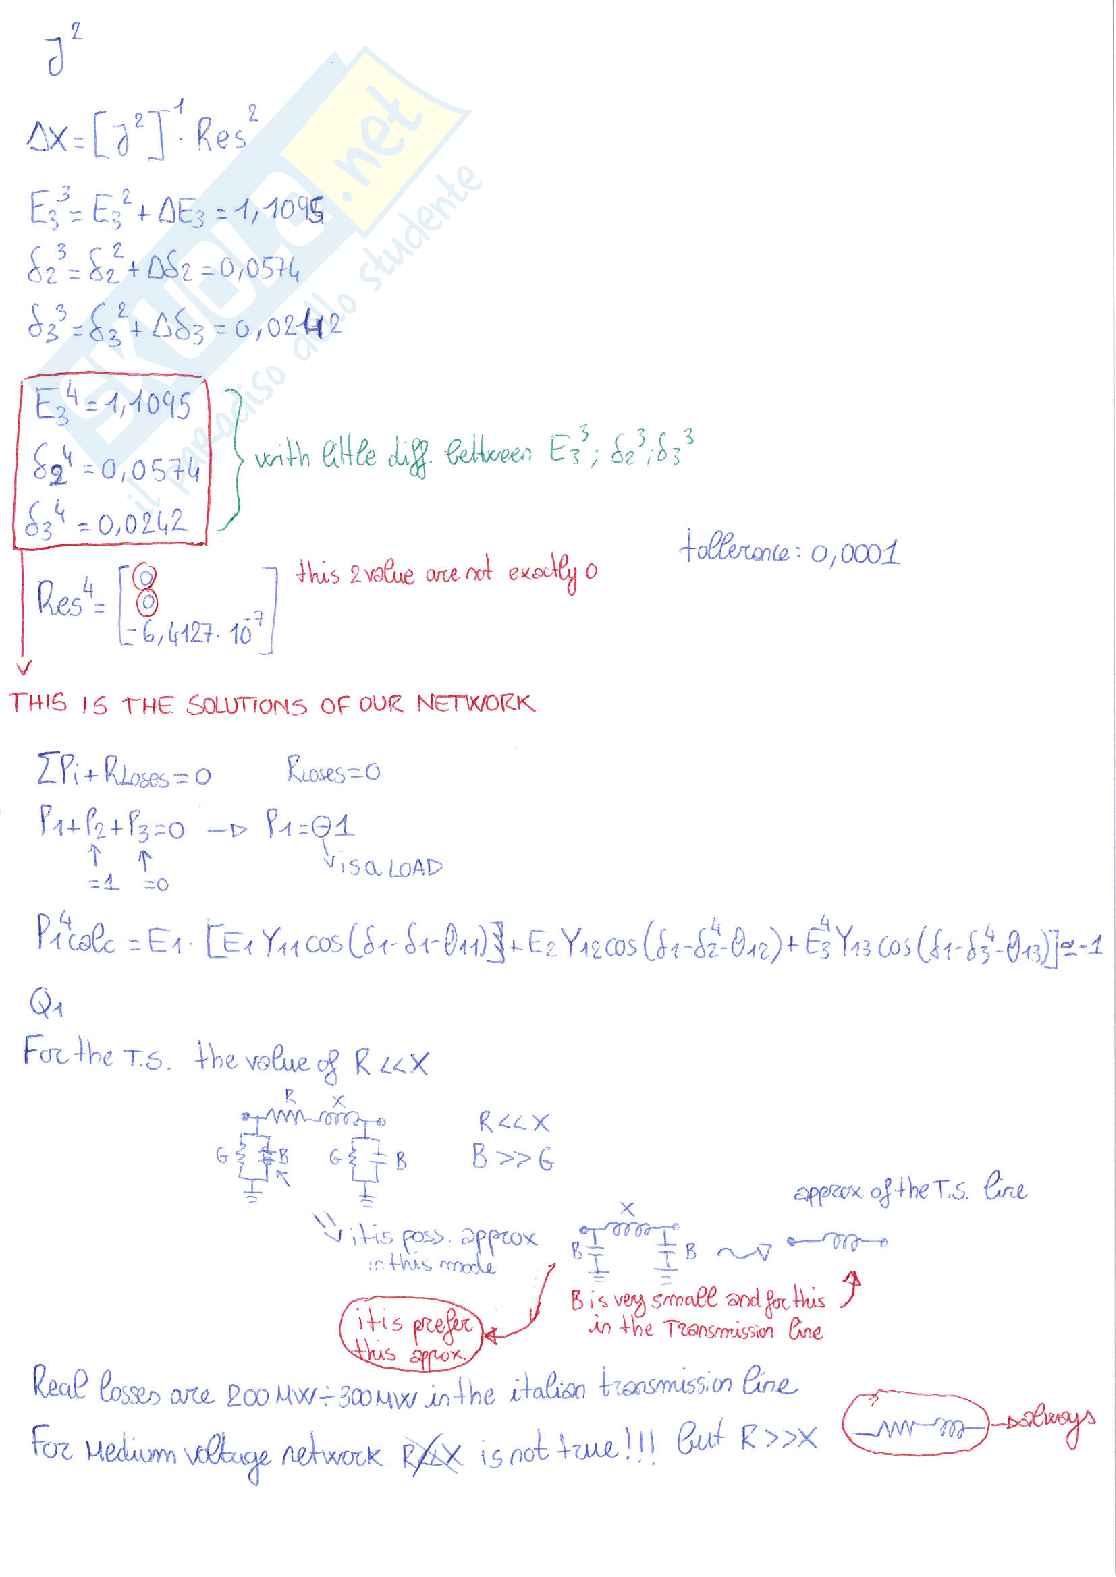 J²
ΔX = [J²]⁻¹ · Res²
E₃³ = E₃² + ΔE₃ = 1,1095
δ₂³ = δ₂² + Δδ₂ = 0,0574
δ₃³ = δ₃² + Δδ₃ = 0,0242
E₃⁴ = 1,1095
δ₂⁴ = 0,0574
δ₃⁴ = 0,0242
with little diff. between E₃³; δ₂³; δ₃³
tollerance: 0,0001
Res⁴ = [0
0
-6,4127 · 10⁻⁷]
this 2 value are not exactly 0
THIS IS THE SOLUTIONS OF OUR NETWORK
ΣPi + PLoses = 0 PLoses = 0
P1 + P2 + P3 = 0 → P1 = ⊖1
=1 =0
is a LOAD
P1⁴calc = E1 · [E1 Y11 cos(δ1-δ1-θ11)] + E2 Y12 cos(δ1-δ2⁴-θ12) + E3⁴ Y13 cos(δ1-δ3⁴-θ13)] ≃ -1
Q1
For the T.S. the value of R<<X
R X
G B G B
R<<X
B>>G
it is poss. approx
in this mode
X
B B
approx of the T.S. line
B is very small and for this
in the Transmission line
it is prefer
this approx.
Real losses are 200MW ÷ 300MW in the italian transmission line
For Medium voltage network R<<X is not true!!! but R>>X
always
SKUOLA.net
il paradiso dello studente